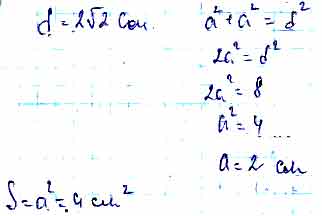 d = 2√2 см.
a² + a² = d²
2a² = d²
2a² = 8
a² = 4
a = 2 см
S = a² = 4 см²